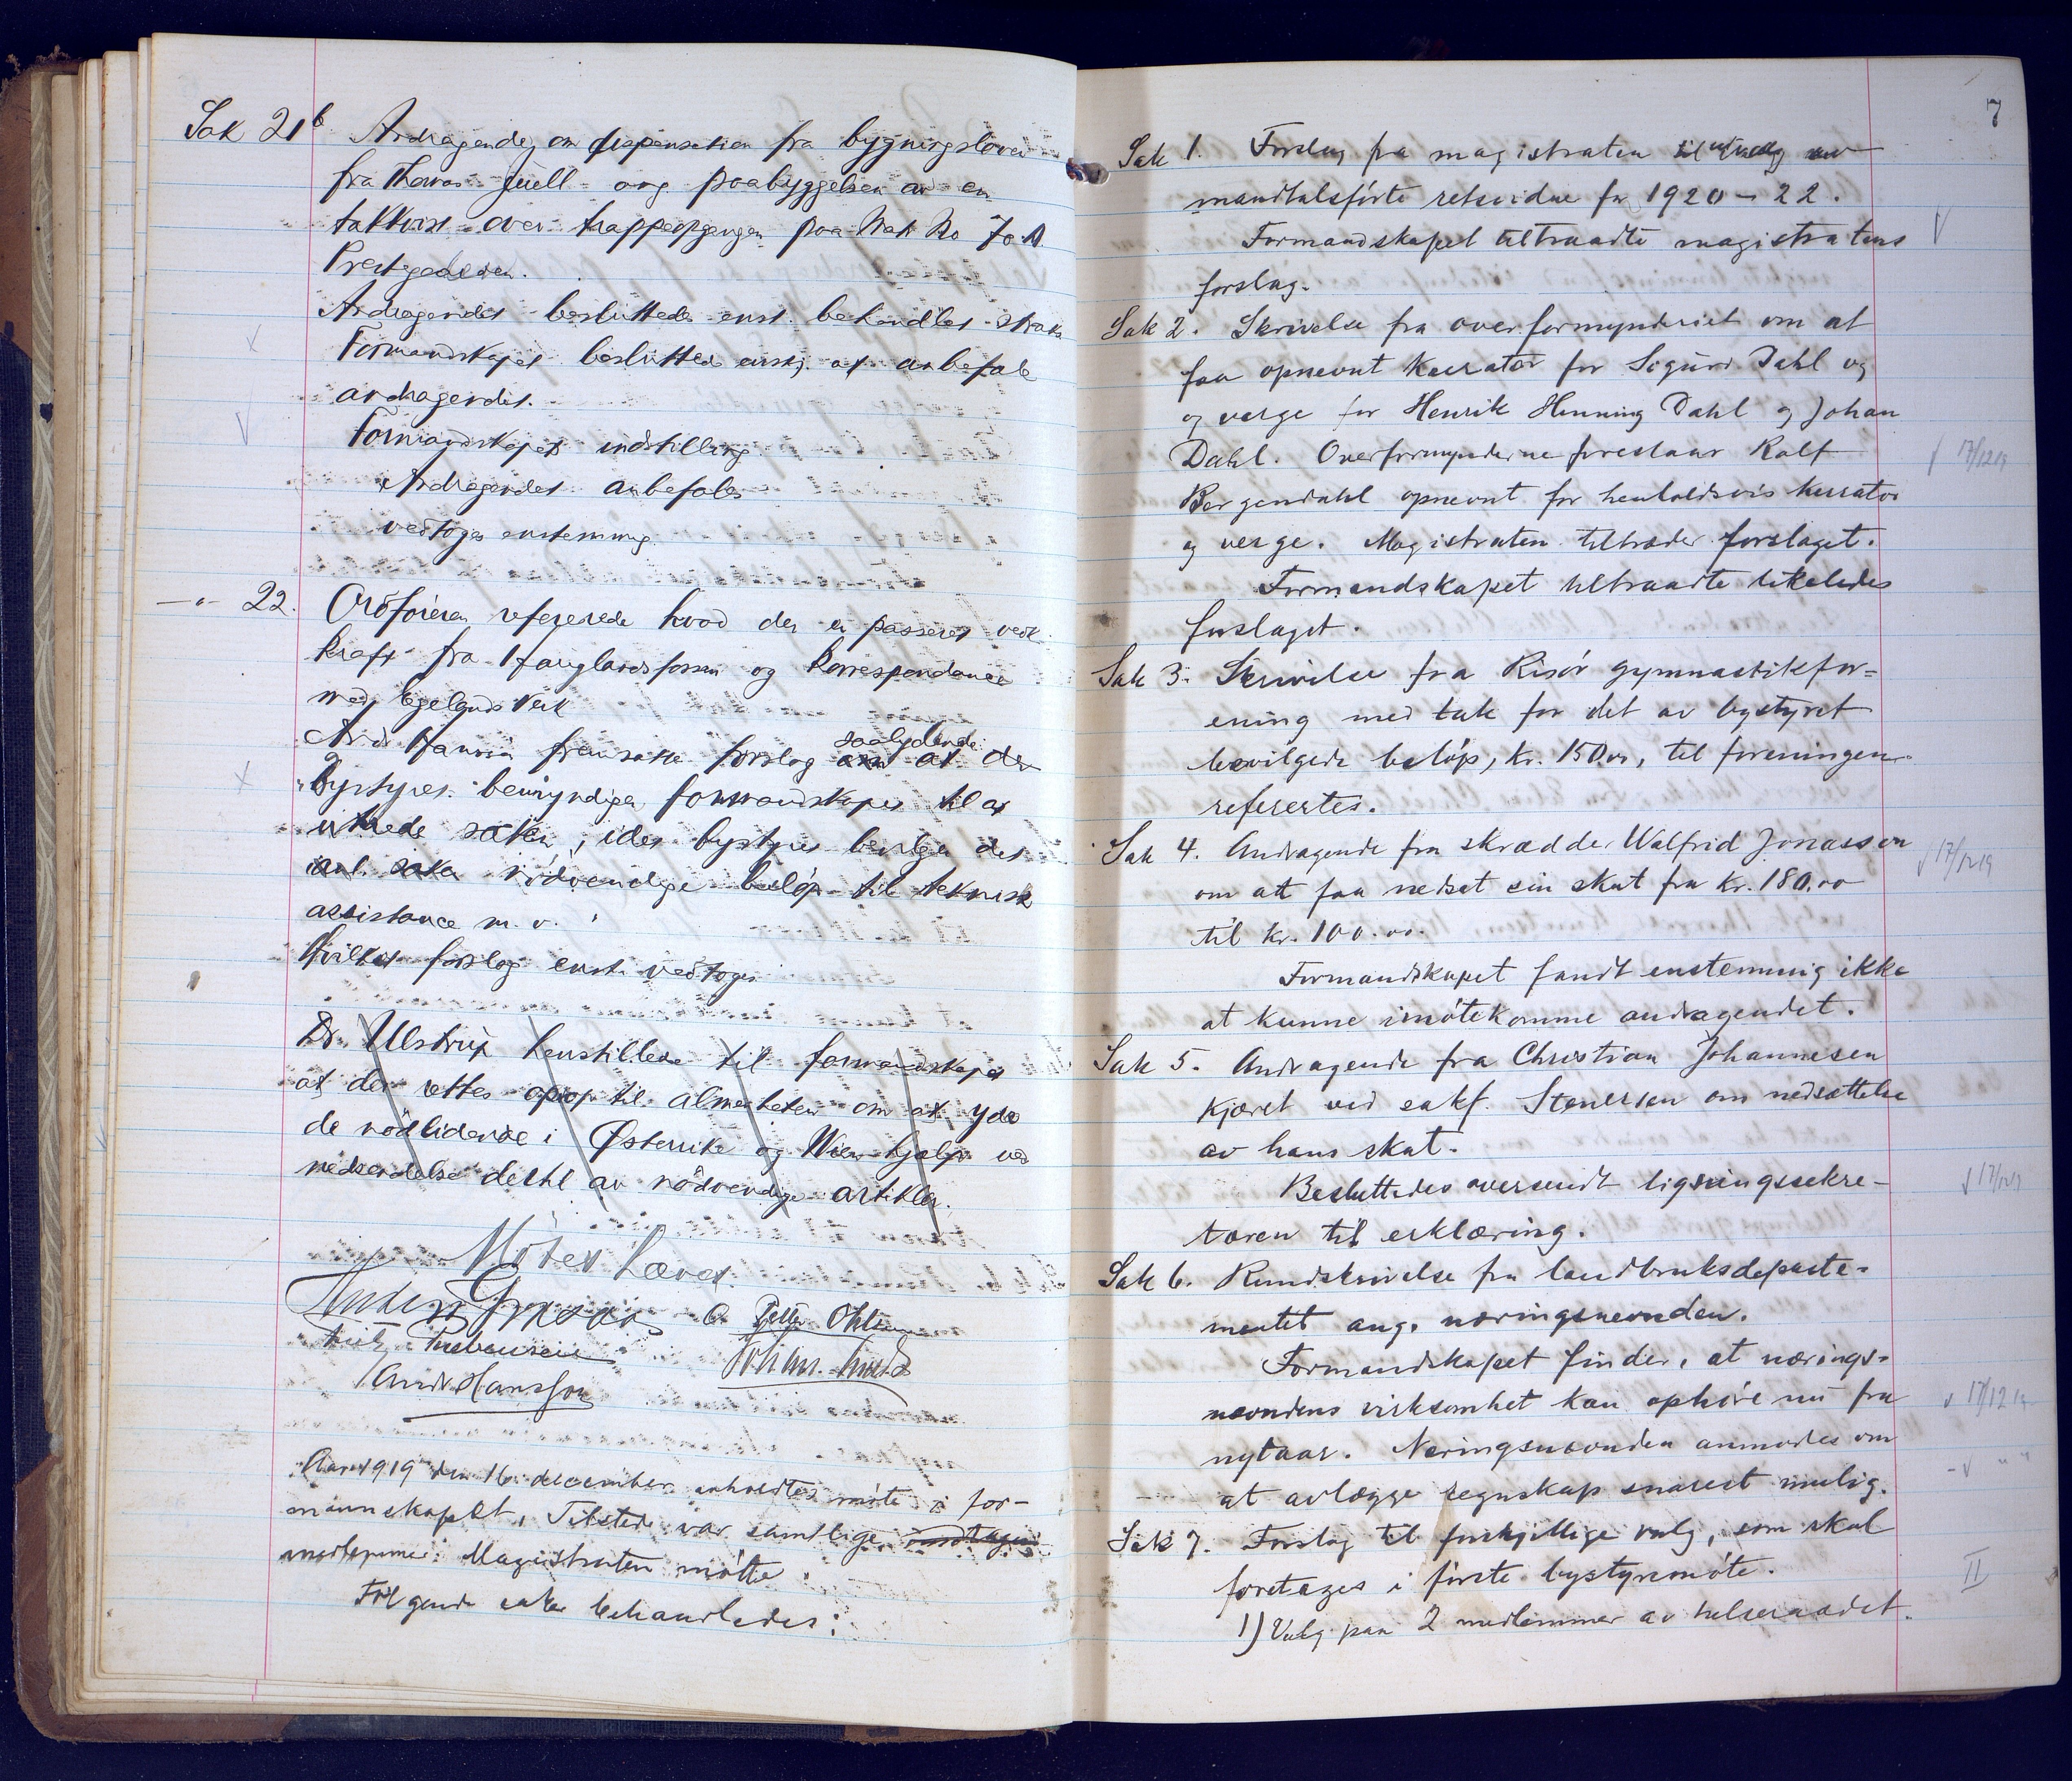 Sak 21b Andragende om dispensation fra bygningsloven
fra Thomas Juell ang paabyggelsen av en
takkvist over trappeopgangen paa Matr No 70 A
Prestegaden.
Andragendet besluttedes enst. behandlet straks
Formandskapet besluttede enst. at anbefale
andragendet.
Formandskapets indstilling
Andragendet anbefales
vedtoges enstemmig
—"— 22. Ordføreren refererede hvad der er passeret vedk.
kraft fra Hauglandsfossen og korrespondance
med Egelands Verk
Andr Hansen fremsatte forslag saalydende:
"Bystyret bemyndiger formandskapet til at
utrede saken, idet bystyret bevilger det
ant. saken nødvendige beløp til teknisk
assistance m. v."
Hvilket forslag enst. vedtoges
Dr. Ulstrup henstillede til formandskapet
at der rettes oprop til almenheten om at yde
de nødlidende i Østerrike og Wien hjælp ved
nedsendelse dertil av nødvendige artikler.
Møtet hævet.
O. Petter Ohlsen
Andr Hansson
Aar 1919 den 16 december avholdtes møte i for-
mannskapet. Tilstede var samtlige
medlemmer. Magistraten møtte.
Følgende saker behandledes:
7
Sak 1. Forslag fra magistraten til utvalg av
mandtalsførte retsvidne for 1920 – 22.
Formandskapet tiltraadte magistratens
forslag.
Sak 2. Skrivelse fra overformynderiet om at
faa opnevnt kurator for Sigurd Dahl og
og verge for Henrik Henning Dahl og Johan
Dahl. Overformynderne foreslaar Ralf
17/12 19
Bergendahl opnevnt for henholdsvis kurator
og verge. Magistraten tiltræder forslaget.
Formandskapet tiltraadte likeledes
forslaget.
Sak 3. Skrivelse fra Risør gymnastikfor-
ening med tak for det av bystyret
bevilgede beløp, kr. 150.00, til foreningen
refereretes.
Sak 4. Andragende fra skrædder Walfrid Jonasson
17/12 19
om att faa nedsat sin skat fra kr. 180.00
til kr. 100.00.
Formandskapet fandt enstemmig ikke
at kunne imøtekomme andragendet.
Sak 5. Andragende fra Christian Johannesen
Kjæret ved sakf. Stenersen om nedsættelse
av hans skat.
Besluttedes oversendt ligningssekre-
17/12 19
tæren til erklæring.
Sak 6. Rundskrivelse fra landbruksdeparte-
mentet ang. næringsnevnden.
Formandskapet finder, at nærings-
nævndens virksomhet kan ophøre nu fra
17/12 19
nytaar. Næringsnævnden anmodes om
at avlægge regnskap snarest mulig.
Sak 7. Forslag til forskjellige valg, som skal
foretages i første bystyremøte.
II
1) Valg paa 2 medlemmer av helseraadet.